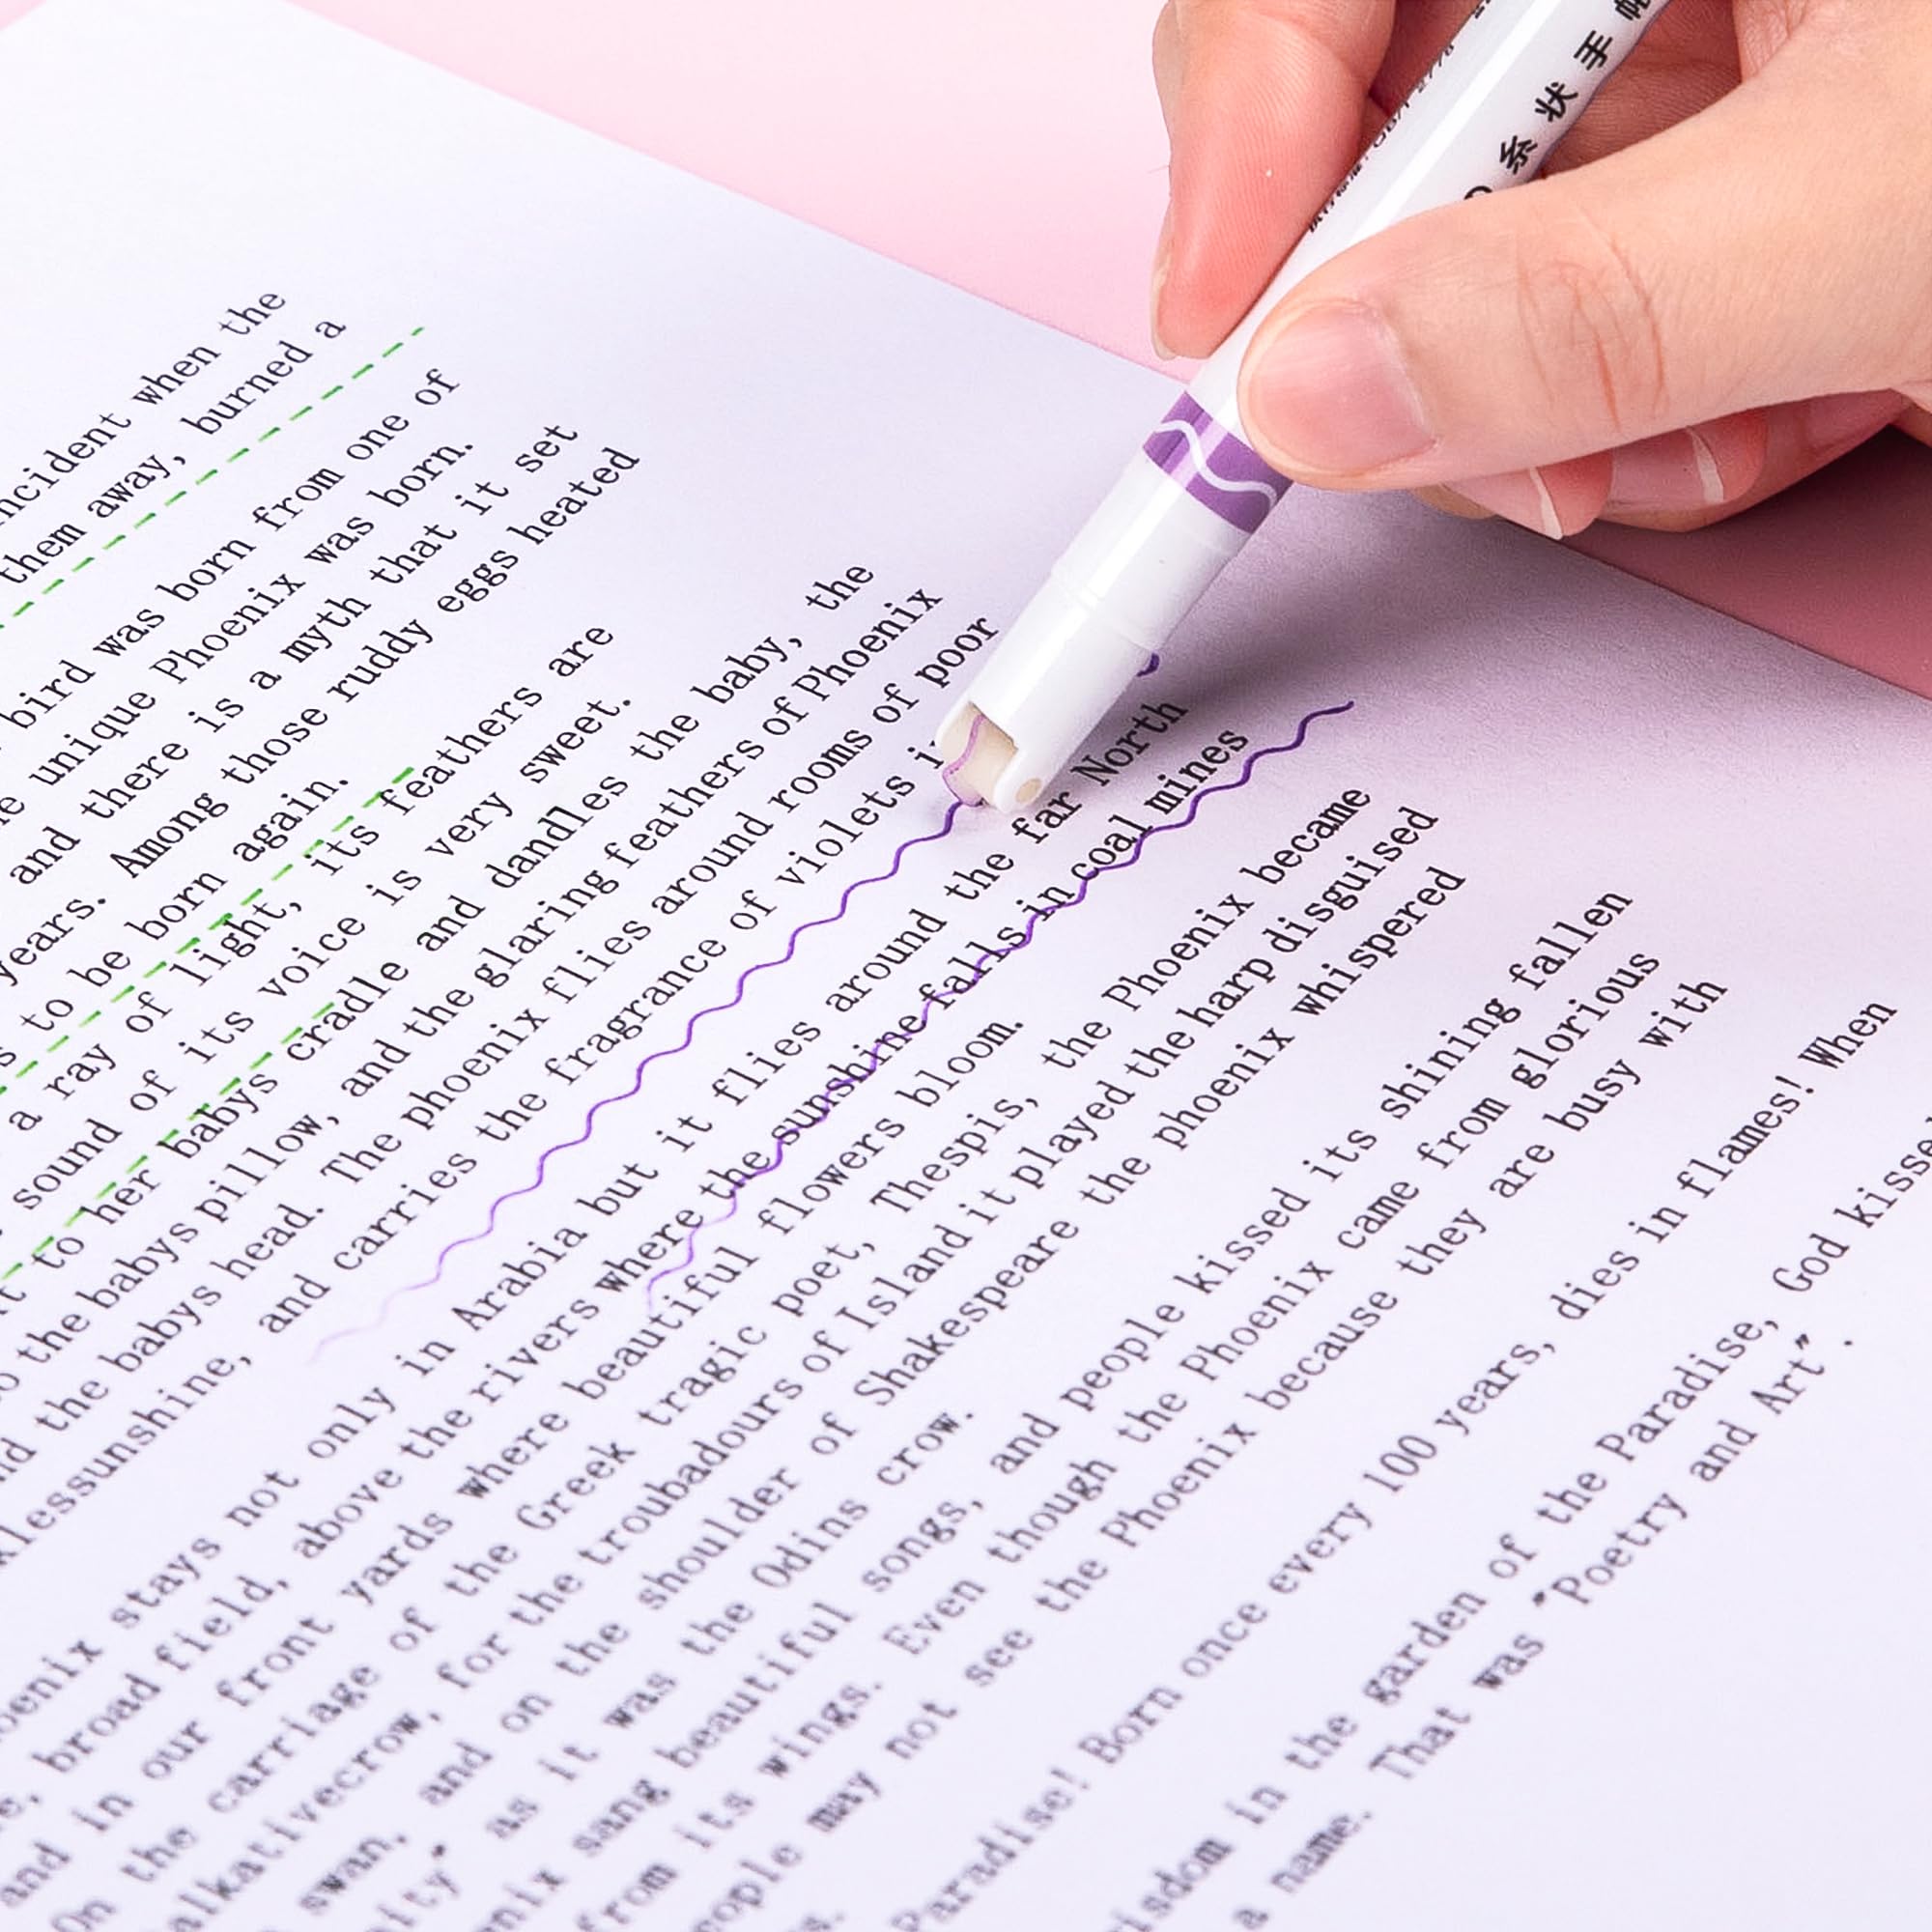 ncident when the
them away, burned a
bird was born from one of
unique Phoenix was born.
and there is a myth that it set
years. Among those ruddy eggs heated
to be born again.
a ray of light, its feathers are
sound of its voice is very sweet.
to her babys cradle and dandles the baby, the
the babys pillow, and the glaring feathers of Phoenix
the babys head. The phoenix flies around rooms of poor
klessunshine, and carries the fragrance of violets
oenix stays not only in Arabia but it flies around the far North
broad field, above the rivers where the sunshine falls in coal mines
and in our front yards where beautiful flowers bloom.
On the carriage of the Greek tragic poet, Thespis, the Phoenix became
alkativecrow, for the troubadours of Island it played the harp disguised
swan, and on the shoulder of Shakespeare the phoenix whispered
as it was the Odins crow.
enix sang beautiful songs, and people kissed its shining fallen
from its wings. Even though the Phoenix came from glorious
eople may not see the Phoenix because they are busy with
Paradise! Born once every 100 years, dies in flames! When
isdom in the garden of the Paradise, God kisse
a name. That was "Poetry and Art".
状手